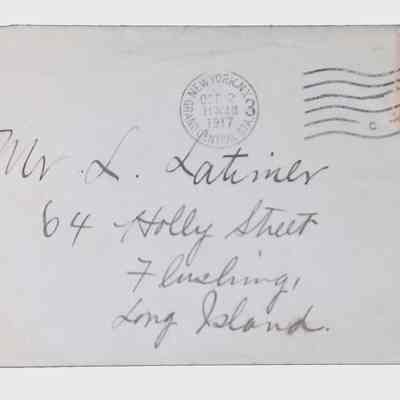 NEW YORK, N.Y.
GRAND CENTRAL STA.
OCT 2
11 AM
1917
C
Mr. L. Latimer
64 Holly Street
Flushing,
Long Island.